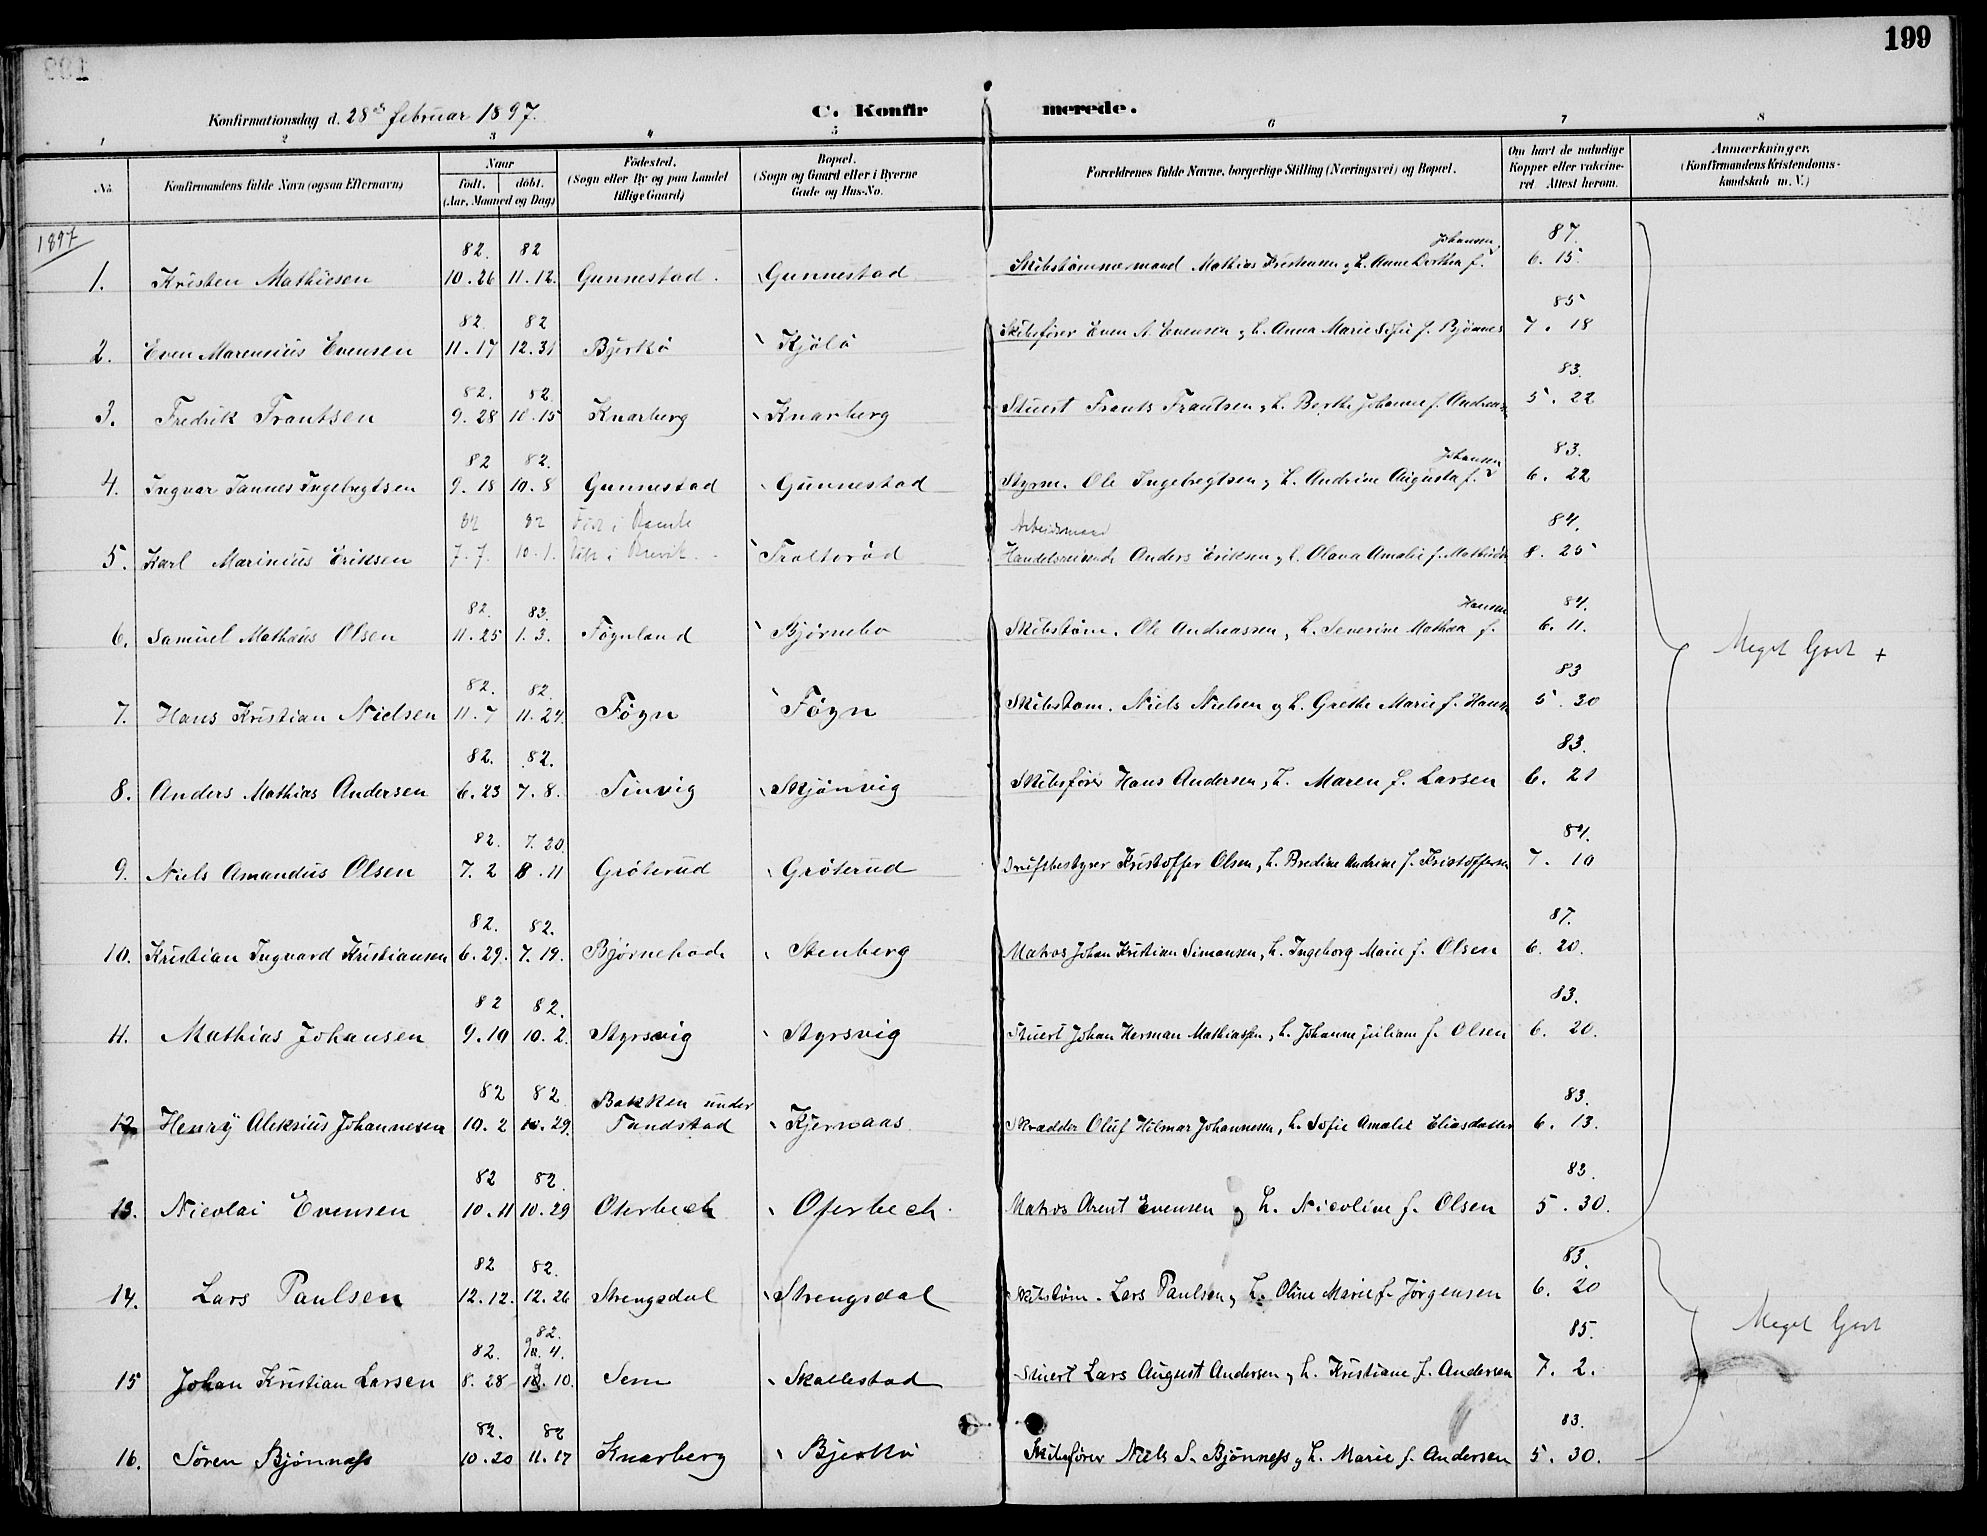 199
Konfirmationsdag d. 28de februar 1897.
C. Konfirmerede.
1 2 3 4 5 6 7 8
No.
Konfirmandens fulde Navn (ogsaa Efternavn)
Naar
født. døbt.
(Aar, Maaned og Dag)
Fødested.
(Sogn eller By og paa Landet
tillige Gaard)
Bopæl.
(Sogn og Gaard eller i Byerne
Gade og Hus-No.
Forældrenes fulde Navne, borgerlige Stilling (Næringsvei) og Bopæl.
Om havt de naturlige
Kopper eller vakcine-
ret. Attest herom.
Anmærkninger.
(Konfirmandens Kristendoms-
kundskab m. V.)
1897
82. 82 Johansen 87.
1. Kristen Mathiesen 10.26 11.12. Gunnestad. Gunnestad Skibstømmermand Mathias Kristensen og h. Anne Dorthea f. 6. 15
82. 82 85
2. Even Marensius Evensen 11.17 12.31 Bjerkø Kjølø Skibsfører Even A. Evensen og h. Anna Marie Sofie f. Bjønnes 7. 18
82. 82. 83.
3. Fredrik Frantsen 9.28 10.15 Knarberg Knarberg Stuert Frants Frantsen og h. Berthe Johanne f. Andreas 5. 22
82 82. Johansen 83.
4. Ingvar Jannes Ingebregtsen 9.18 10.8 Gunnestad Gunnestad Styrm. Ole Ingebregtsen og h. Andrine Augusta f. 6. 22
82 82 Født i Bamle Arbeidsmand 84.
5. Karl Marinius Eriksen 7.7. 10.1. i Brevik. Traltorød Handelsreisende Anders Eriksen og h. Olava Amalie f. Mathisen 8. 25
82. 83. Hansen 84.
6. Samuel Mathæus Olsen 11.25 1.3. Føgnland Bjørnebo Skibstøm. Ole Andreassen, h. Severine Mathea f. 6. 11.
Meget Godt +
82. 82. 83
7. Hans Kristian Nielsen 11.7 11.24. Føgn Føgn Skibstøm. Niels Nielsen og h. Grethe Marie f. Hansen 5. 30
82. 82. 83.
8. Anders Mathias Andersen 6.23 7.8. Tinvig Skjønvig Skibsfører Hans Andersen, h. Maren f. Larsen 6. 21
82. 7.20. 84.
9. Niels Amandus Olsen 7.2 8.11 Grøterud Grøterud Driftbestyrer Kristoffer Olsen, h. Bredine Andrine f. Kristoffersen 7. 10
82. 82. 87.
10. Kristian Ingvard Kristiansen 6.29. 7.19. Bjørnebode Stenberg Matros Johan Kristian Simonsen, h. Ingeborg Marie f. Olsen 6. 20.
82 82. 83.
11. Mathias Johansen 9.10 10.2. Styrsvig Styrsvig Stuert Johan Herman Mathiassen, h. Johanne Juliane f. Olsen 6. 20.
82 82. Bakken under 83.
12 Henry Aleksius Johannesen 10.2 10.29. Tandstad Kjernaas Skrædder Oluf Hilmar Johannesen, h. Sofie Amalie Eliasdatter 6. 13.
82 82. 83.
13. Nicolai Evensen 10.11 10.29 Oterbech Oterbech. Matros Arent Evensen og h. Nicoline f. Olsen 5. 30.
82 82. 83.
14. Lars Paulsen 12.12. 12.26 Strengsdal Strengsdal Skibstøm. Lars Paulsen, h. Oline Marie f. Jørgensen 6. 20
Meget Godt
82. 82. 4. 85.
15 Johan Kristian Larsen 8.28 10. Sem Skallestad Stuert Lars August Andersen, h. Kristiane f. Andersen 7. 2.
82. 82 83.
16. Søren Bjønness 10.20 11.17 Knarberg Bjerkø Skibsfører Niels S. Bjønness, h. Marie f. Andersen 5. 30.